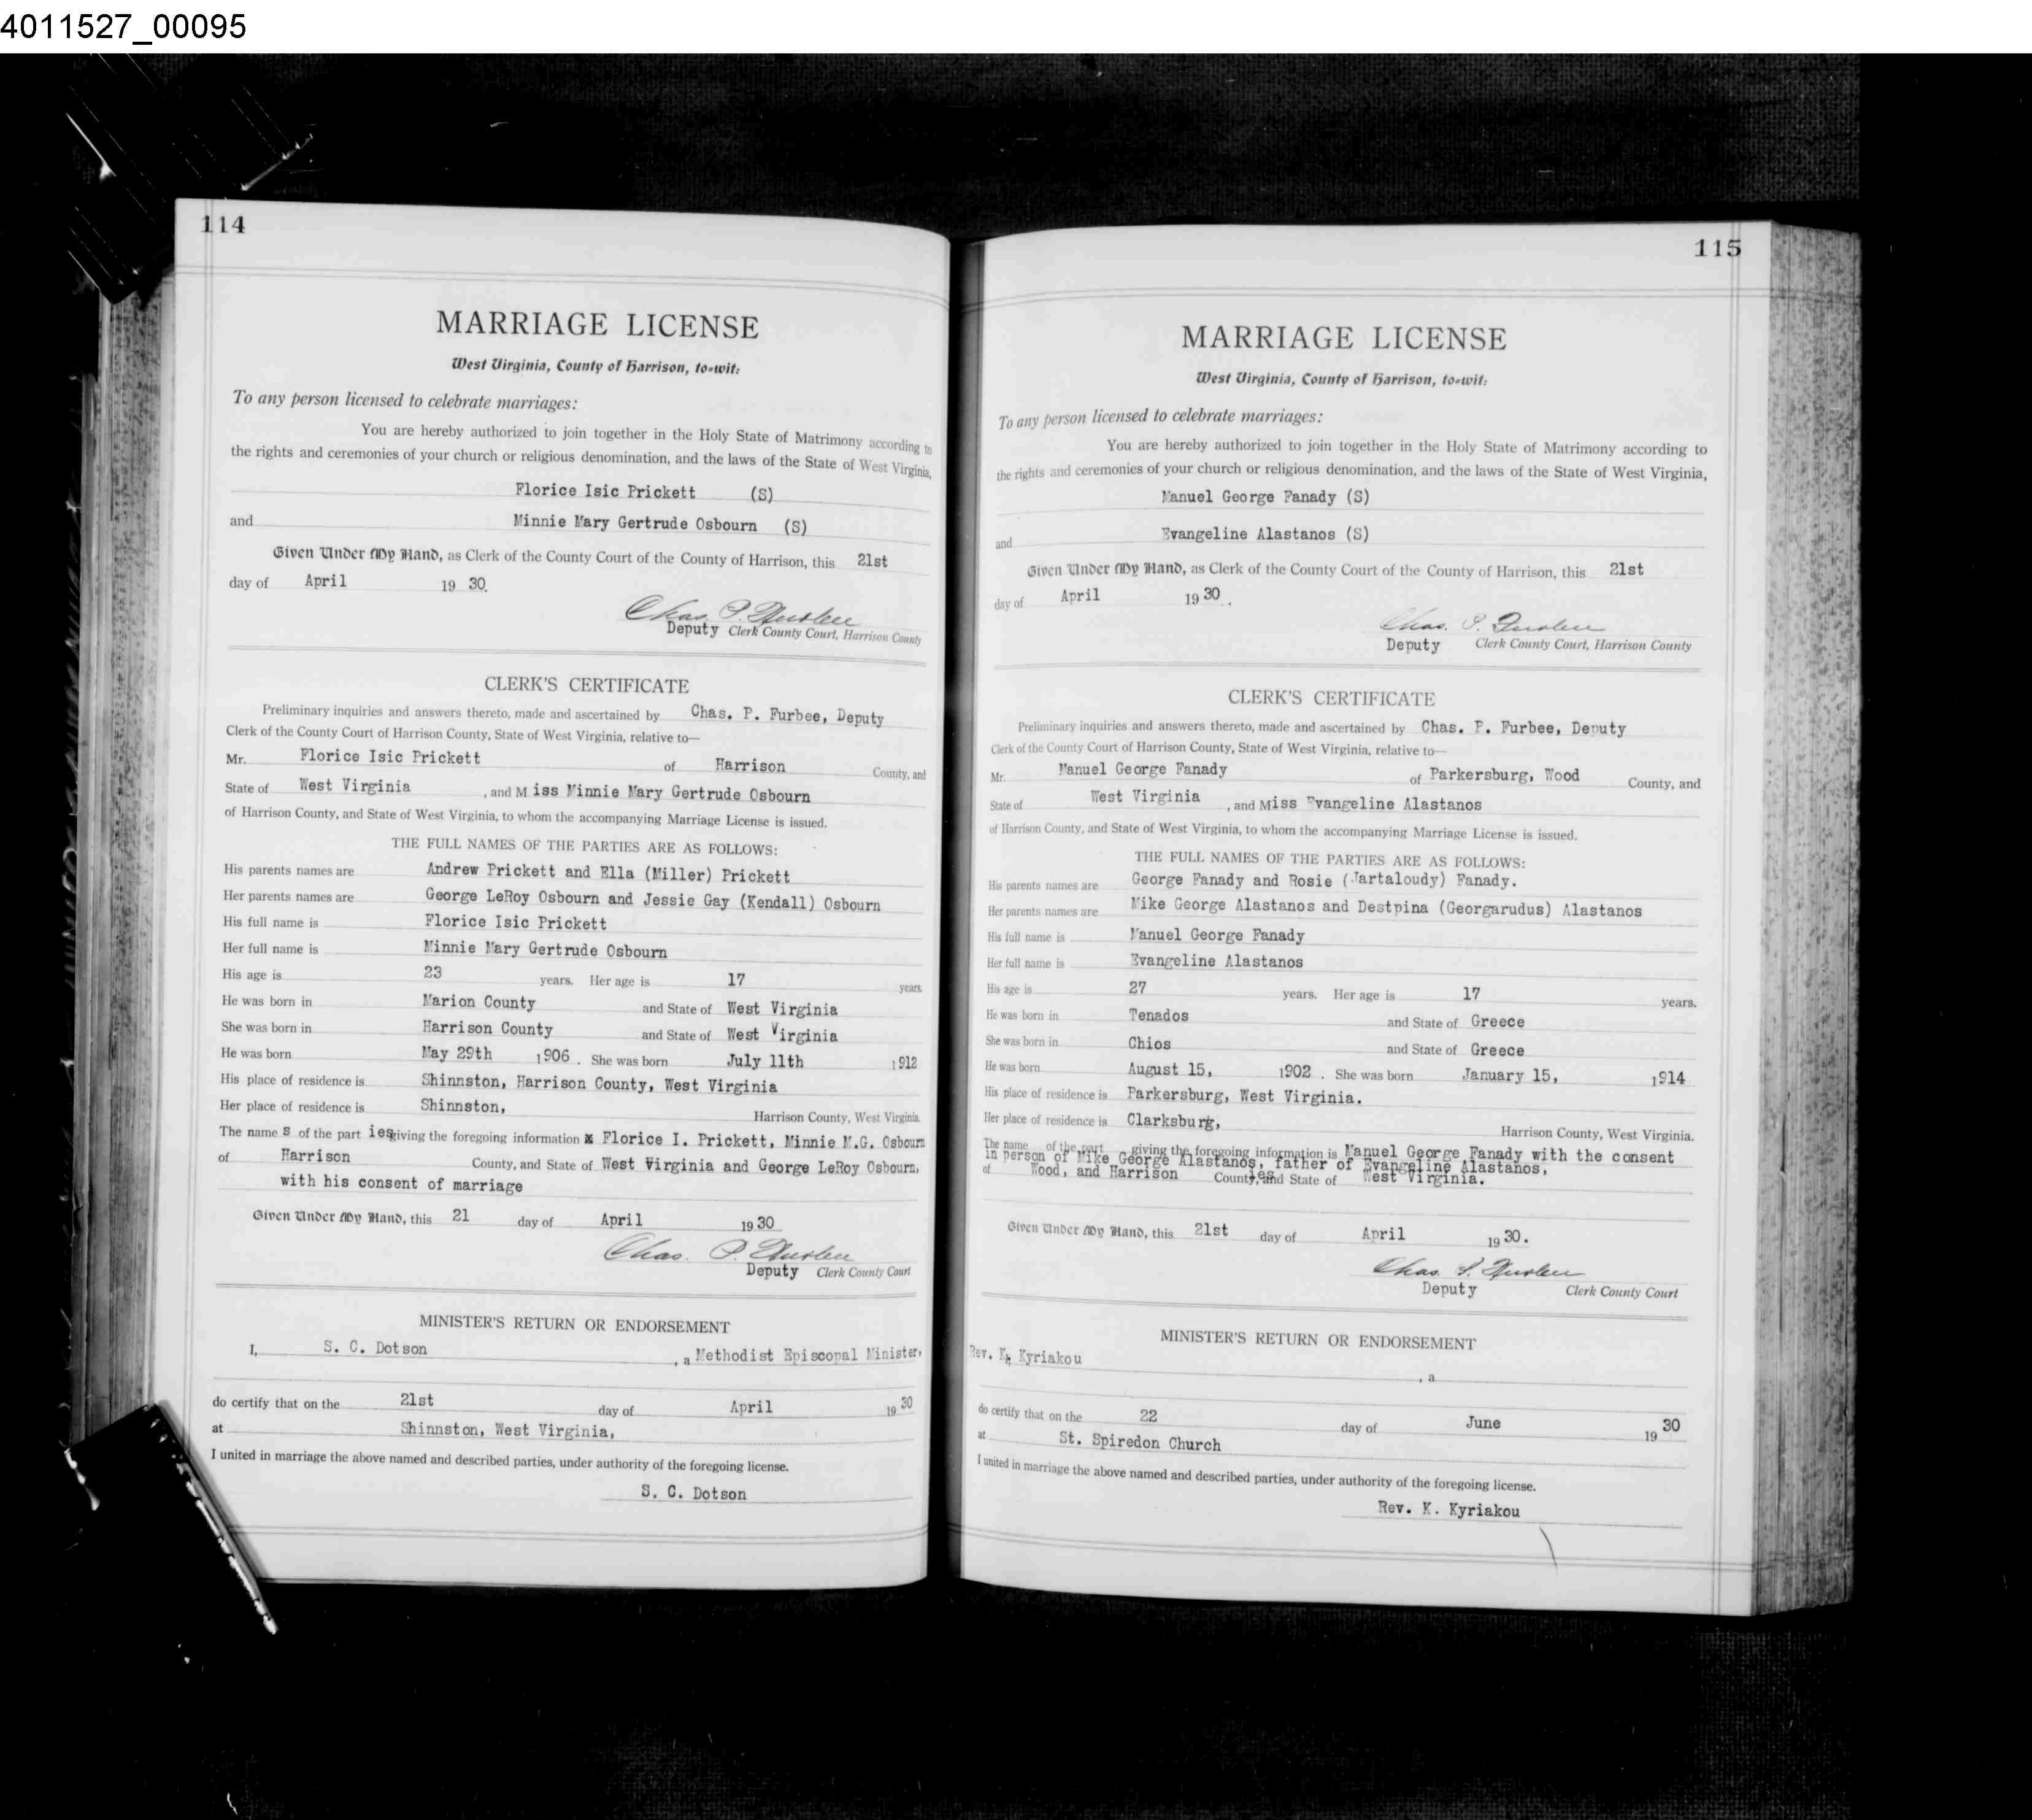 4011527_00095
114
MARRIAGE LICENSE
West Virginia, County of Harrison, to-wit:
To any person licensed to celebrate marriages:
You are hereby authorized to join together in the Holy State of Matrimony according to
the rights and ceremonies of your church or religious denomination, and the laws of the State of West Virginia,
Florice Isic Prickett (S)
and Minnie Mary Gertrude Osbourn (S)
Given Under My Hand, as Clerk of the County Court of the County of Harrison, this 21st
day of April 19 30.
Chas. P. Furbee
Deputy Clerk County Court, Harrison County
CLERK'S CERTIFICATE
Preliminary inquiries and answers thereto, made and ascertained by Chas. P. Furbee, Deputy
Clerk of the County Court of Harrison County, State of West Virginia, relative to—
Mr. Florice Isic Prickett of Harrison County, and
State of West Virginia, and Miss Minnie Mary Gertrude Osbourn
of Harrison County, and State of West Virginia, to whom the accompanying Marriage License is issued.
THE FULL NAMES OF THE PARTIES ARE AS FOLLOWS:
His parents names are Andrew Prickett and Ella (Miller) Prickett
Her parents names are George LeRoy Osbourn and Jessie Gay (Kendall) Osbourn
His full name is Florice Isic Prickett
Her full name is Minnie Mary Gertrude Osbourn
His age is 23 years. Her age is 17 years.
He was born in Marion County and State of West Virginia
She was born in Harrison County and State of West Virginia
He was born May 29th 1906. She was born July 11th 1912
His place of residence is Shinnston, Harrison County, West Virginia
Her place of residence is Shinnston, Harrison County, West Virginia.
The names of the parties giving the foregoing information x Florice I. Prickett, Minnie M.G. Osbourn
of Harrison County, and State of West Virginia and George LeRoy Osbourn,
with his consent of marriage
Given Under My Hand, this 21 day of April 19 30
Chas. P. Furbee
Deputy Clerk County Court
MINISTER'S RETURN OR ENDORSEMENT
I, S. C. Dotson, a Methodist Episcopal Minister,
do certify that on the 21st day of April 19 30
at Shinnston, West Virginia,
I united in marriage the above named and described parties, under authority of the foregoing license.
S. C. Dotson
115
MARRIAGE LICENSE
West Virginia, County of Harrison, to-wit:
To any person licensed to celebrate marriages:
You are hereby authorized to join together in the Holy State of Matrimony according to
the rights and ceremonies of your church or religious denomination, and the laws of the State of West Virginia,
Manuel George Fanady (S)
and Evangeline Alastanos (S)
Given Under My Hand, as Clerk of the County Court of the County of Harrison, this 21st
day of April 19 30.
Chas. P. Furbee
Deputy Clerk County Court, Harrison County
CLERK'S CERTIFICATE
Preliminary inquiries and answers thereto, made and ascertained by Chas. P. Furbee, Deputy
Clerk of the County Court of Harrison County, State of West Virginia, relative to—
Mr. Manuel George Fanady of Parkersburg, Wood County, and
State of West Virginia, and Miss Evangeline Alastanos
of Harrison County, and State of West Virginia, to whom the accompanying Marriage License is issued.
THE FULL NAMES OF THE PARTIES ARE AS FOLLOWS:
His parents names are George Fanady and Rosie ( ) Fanady.
Her parents names are Mike George Alastanos and Destpina (Georgarudus) Alastanos
His full name is Manuel George Fanady
Her full name is Evangeline Alastanos
His age is 27 years. Her age is 17 years.
He was born in Tenados and State of Greece
She was born in Chios and State of Greece
He was born August 15, 1902. She was born January 15, 1914
His place of residence is Parkersburg, West Virginia.
Her place of residence is Clarksburg, Harrison County, West Virginia.
The name of the part giving the foregoing information is Manuel George Fanady with the consent
in person of Mike George Alastanos, father of Evangeline Alastanos,
of Wood, and Harrison Counties, and State of West Virginia.
Given Under My Hand, this 21st day of April 19 30.
Chas. P. Furbee
Deputy Clerk County Court
MINISTER'S RETURN OR ENDORSEMENT
Rev. K. Kyriakou
, a
do certify that on the 22 day of June 19 30
at St. Spiredon Church
I united in marriage the above named and described parties, under authority of the foregoing license.
Rev. K. Kyriakou